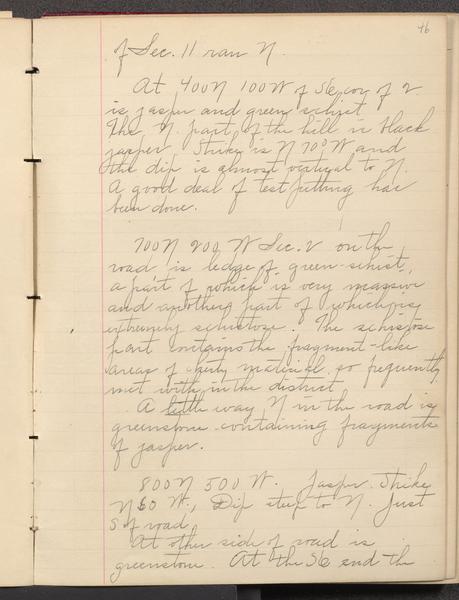 46
of Sec. 11 ran N.
At 400 N 100 W of SE cor of 2
is jasper and green schist
The N. part of the hill is black
jasper. Strike is N 70° W and
the dip is almost vertical to N.
A good deal of test pitting has
been done.
700 N 200 W Sec. 2 on the
road is ledge of green-schist,
a part of which is very massive
and another part of which is
extremely schistose. The schistose
part contains the fragment-like
areas of cherty material so frequently
met with in the district.
A little way N in the road is
greenstone containing fragments
of jasper.
800 N 500 W. Jasper. Strike
N 60 W., Dip steep to N. Just
S of road
At other side of road is
greenstone. At the SE end the